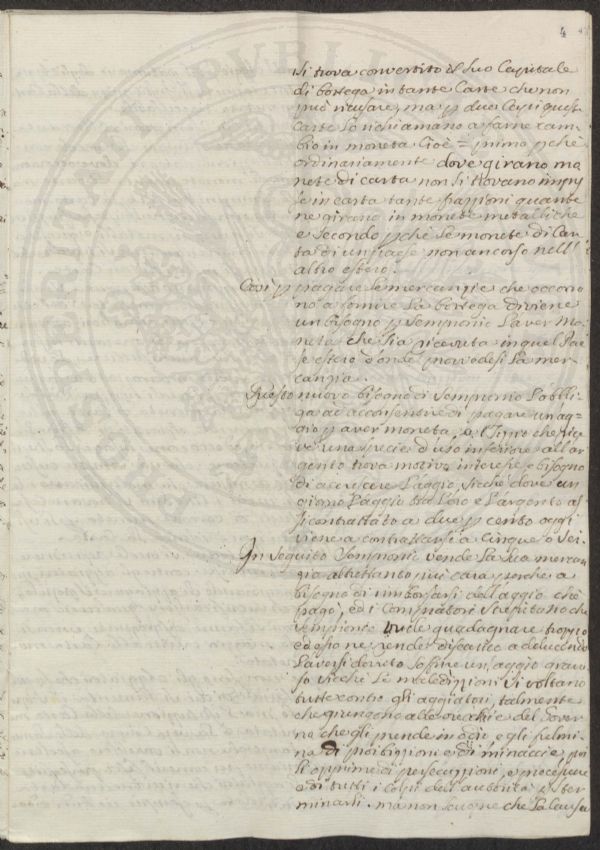 4
si trova convertito il suo Capitale
di bottega in tante Carte che non
può ricusare, ma p due Capi quest
Carte lo richiamano a farne cam-
bio in moneta Cioè = primo pchè
ordinariamente dove girano mo
nete di carta non si trovano impres
se in carta tante frazzioni quante
ne girano in monete metalliche
e secondo pchè le monete di Car
ta di un paese non an corso nell'
altro estero.
Così p pagare le mercanzie che occorro
no a fornire la bottega diviene
un bisogno p Sempronio l'aver Mo
neta che sia ricevuta in quel Pae
se estero d'onde provvedesi la mer-
canzia.
Questo nuovo bisogno di Sempronio l'obbli-
ga ad acconsentire di pagare un ag-
gio p aver moneta, e il Tizio che rice
ve una specie d'uso inferiore all'ar
gento trova motivo interesse e bisogno
di accrescere l'aggio, sicchè dove un
giorno l'aggio tra l'oro e l'argento as
si contrattato a due p cento oggi
viene a contrattarsi a Cinque o sei.
In seguito Sempronio vende la sua mercan
zia altrettanto più cara perche a
bisogno di rimborsarsi dell'aggio che
pagò, ed i Compratori strepitano che
Sempronio vuole guadagnare troppo
ed esso ne rende discarico adducendo
l'aversi dovuto soffrire un aggio gravo
so sicchè le maledizioni si voltano
tutte contro gli aggiatori, talmente
che giungono alle orecchie del Gover
no che gli prende in odio e gli fulmi
na di proibizioni e di minaccie, poi
li opprime di persecuzzioni, e procedure
e di tutti i colpi dell'autorità p ster
minarli. ma non scuopre che la causa
PVBLI
PROSPERITATI